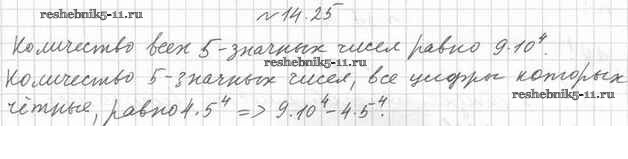 reshebnik5-11.ru
№14.25
Количество всех 5-значных чисел равно 9·10⁴.
reshebnik5-11.ru
Количество 5-значных чисел, все цифры которых
reshebnik5-11.ru
чётные, равно 4.5⁴ => 9.10⁴-4.5⁴.
reshebnik5-11.ru